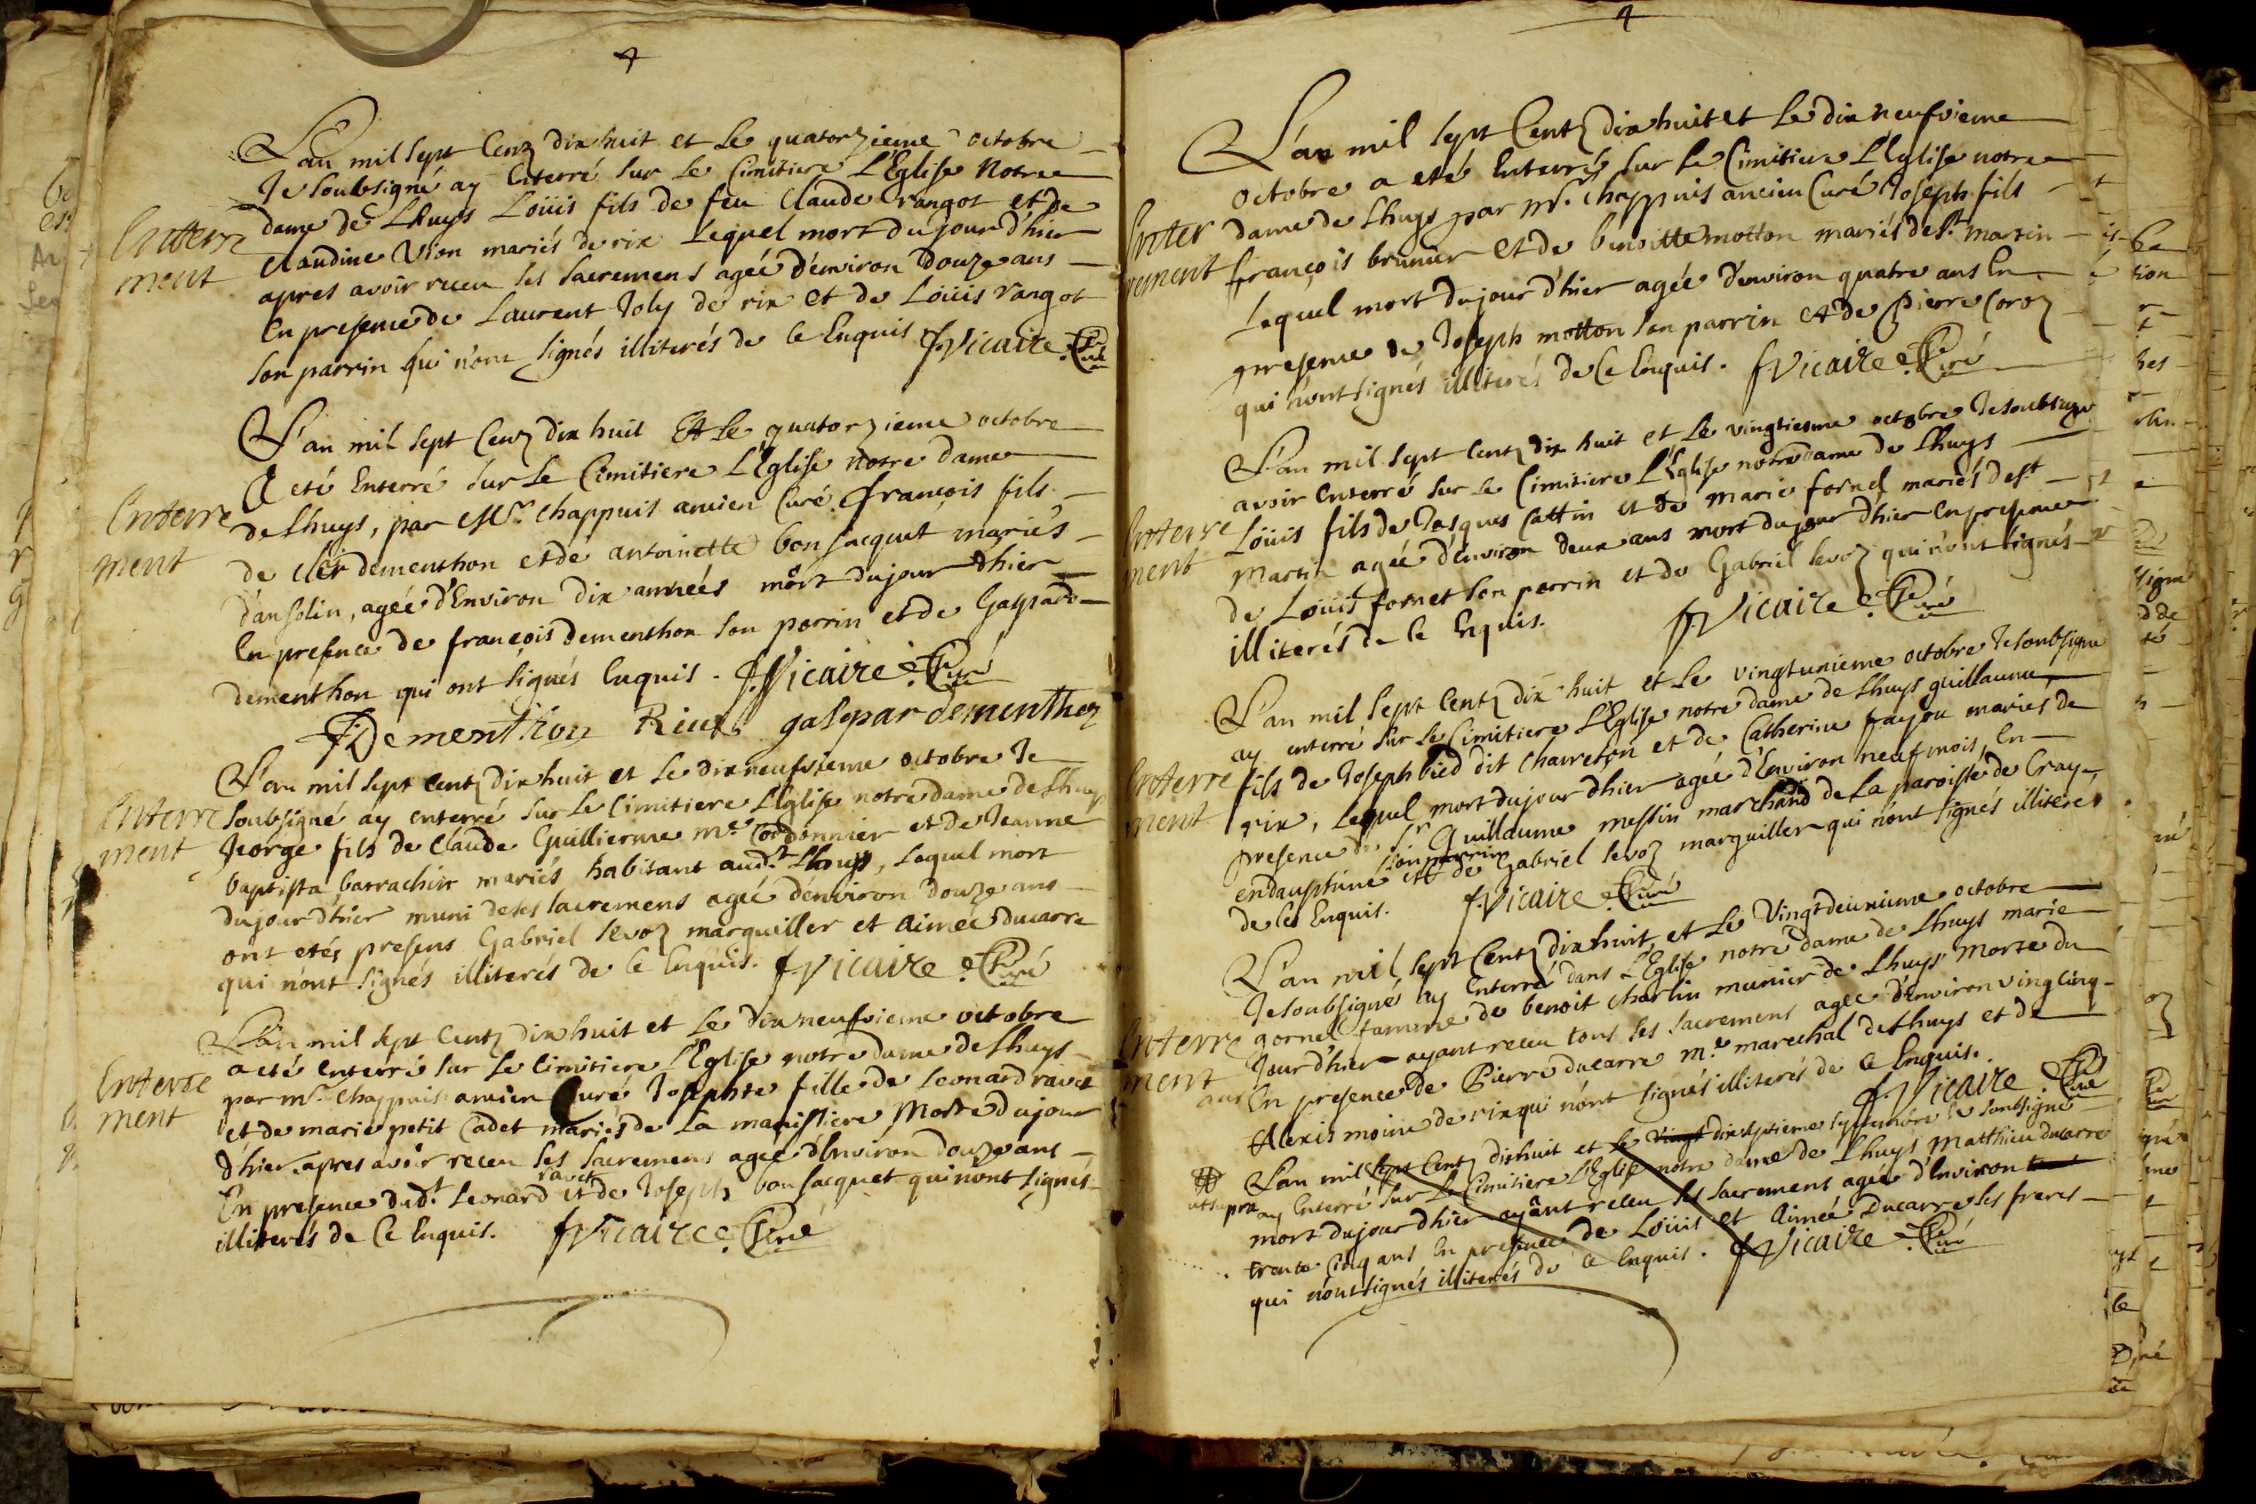 L'an mil sept Centz dix huit et le quatorzieme octobre
Je soubsigné ay Enterré sur le Cimitiere L'Eglise Notre
dame de Lhuys Loüis fils de feu Claude rangot et de
Enterre
ment
Claudine Vion mariés de rix Lequel mort du jour d'hier
apres avoir receu les sacremens agée d'environ douze ans
En presence de Laurent Joly de rix et de Loüis rangot
son parrin qui n'ont signés illiterés de ce Enquis. f Vicaire Curé
L'an mil sept Centz dix huit Et le quatorzieme octobre
A eté Enterré sur le Cimitiere L'Eglise notre dame
de Lhuys, par Mr. Chappuis ancien Curé françois fils
Enterre
ment
de Cler dementhon et de antoinette bonjacquet mariés
d'ansolin, agée d'Environ dix années mort du jour d'hier
En presence de françois dementhon son parrin et de Gaspard
dementhon qui ont signés Enquis. f. Vicaire Curé
F Dementhon gaspar dementhon
L'an mil sept Centz dix huit et le dix neufvieme octobre Je
Enterre
ment
soubsigné ay enterré sur le Cimitiere L'Eglise notre dame de Lhuys
George fils de Claude Guillierme me. Cordonnier et de Jeanne
baptista barrachin mariés habitant aud.t Lhuys, Lequel mort
du jour d'hier muni de ses sacremens agée d'environ douze ans
ont etés presens Gabriel sevoz marguiller et Aimée ducarre
qui n'ont signés illiterés de ce Enquis. f Vicaire Curé
L'an mil sept Centz dix huit et le dix neufvieme octobre
a eté enterré sur le Cimitiere L'Eglise notre dame de Lhuys
Enterre
ment
par mr. Chappuis ancien Curé Josephte fille de Leonard ravet
et de marie petit Cadet mariés de La manissiere Morte du jour
d'hier apres avoir receu ses sacremens agée d'Environ douze ans
En presence dud.t Leonard ravet et de Joseph bonjacquet qui n'ont signés
illiterés de Ce Enquis. f Vicaire Curé
L'an mil sept Centz dix huit et le dix neufvieme
octobre a eté Enterrés sur le Cimitiere L'Eglise notre
Enter
rement
dame de Lhuys par mr. Chappuis ancien Curé Joseph fils
françois brunier et de benoitte motton mariés de St. martin
Lequel mort du jour d'hier agée d'environ quatre ans En
presence de Joseph motton son parrin et de Pierre Coroz
qui n'ont signés illiterés de Ce Enquis. f Vicaire Curé
L'an mil sept Centz dix huit et le vingtiesme octobre Je soubsigné
avoir enterré sur le Cimitiere L'Eglise notre dame de Lhuys
Enterre
ment
Loüis fils de Jasques Cattin et de Marie fornet mariés de St
Martin agée d'environ deux ans mort du jour d'hier En presence
de Loüis fornet son parrin et de Gabriel sevoz qui n'ont signés
illiterés de ce Enquis. f Vicaire Curé
L'an mil sept Centz dix huit et le vingtunieme octobre Je soubsigné
ay enterré sur le Cimitiere L'Eglise notre dame de Lhuys guillaume
Enterre
ment
fils de Joseph bied dit Chaureton et de Catherine frayou mariés de
rix, Lequel mort du jour d'hier agée d'Environ neuf mois, En
presence de Sr. Guillaume messin marchand de La paroisse de Cray
endauphiné son parrin et de Gabriel sevoz marguiller qui n'ont signés illiteres
de Ces Enquis. f. Vicaire Curé
L'an mil sept Centz dix huit et le Vingtdeuxieme octobre
Je soubsignés ay Enterré dans L'Eglise notre dame de Lhuys marie
Enterre
ment
gornel famme de benoit Charlin munier de Lhuys morte du
Jour d'hier ayant receu tous ses sacremens agée d'Environ vingcinq
ans En presence de Pierre ducarre me. marechal de Lhuys et de
Alexis moine de rix qui n'ont signés illiterés de ce Enquis.
f. Vicaire Curé
L'an mil sept Centz dixhuit et le vingt dixseptieme septembre Je soubsigné
ut supra
ay Enterré sur Le Cimitiere L'Eglise notre dame de Lhuys Matthieu ducarre
mort du jour d'hier ayant receu ses sacremens agée d'Environ
trente Cinq ans En presence de Loüis et Aimée Ducarre ses freres
qui n'ont signés illiterés de ce Enquis. f Vicaire Curé